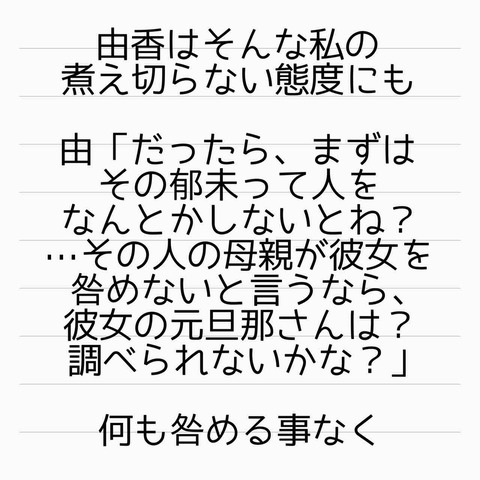 由香はそんな私の
煮え切らない態度にも
由「だったら、まずは
その郁未って人を
なんとかしないとね？
…その人の母親が彼女を
咎めないと言うなら、
彼女の元旦那さんは？
調べられないかな？」
何も咎める事なく